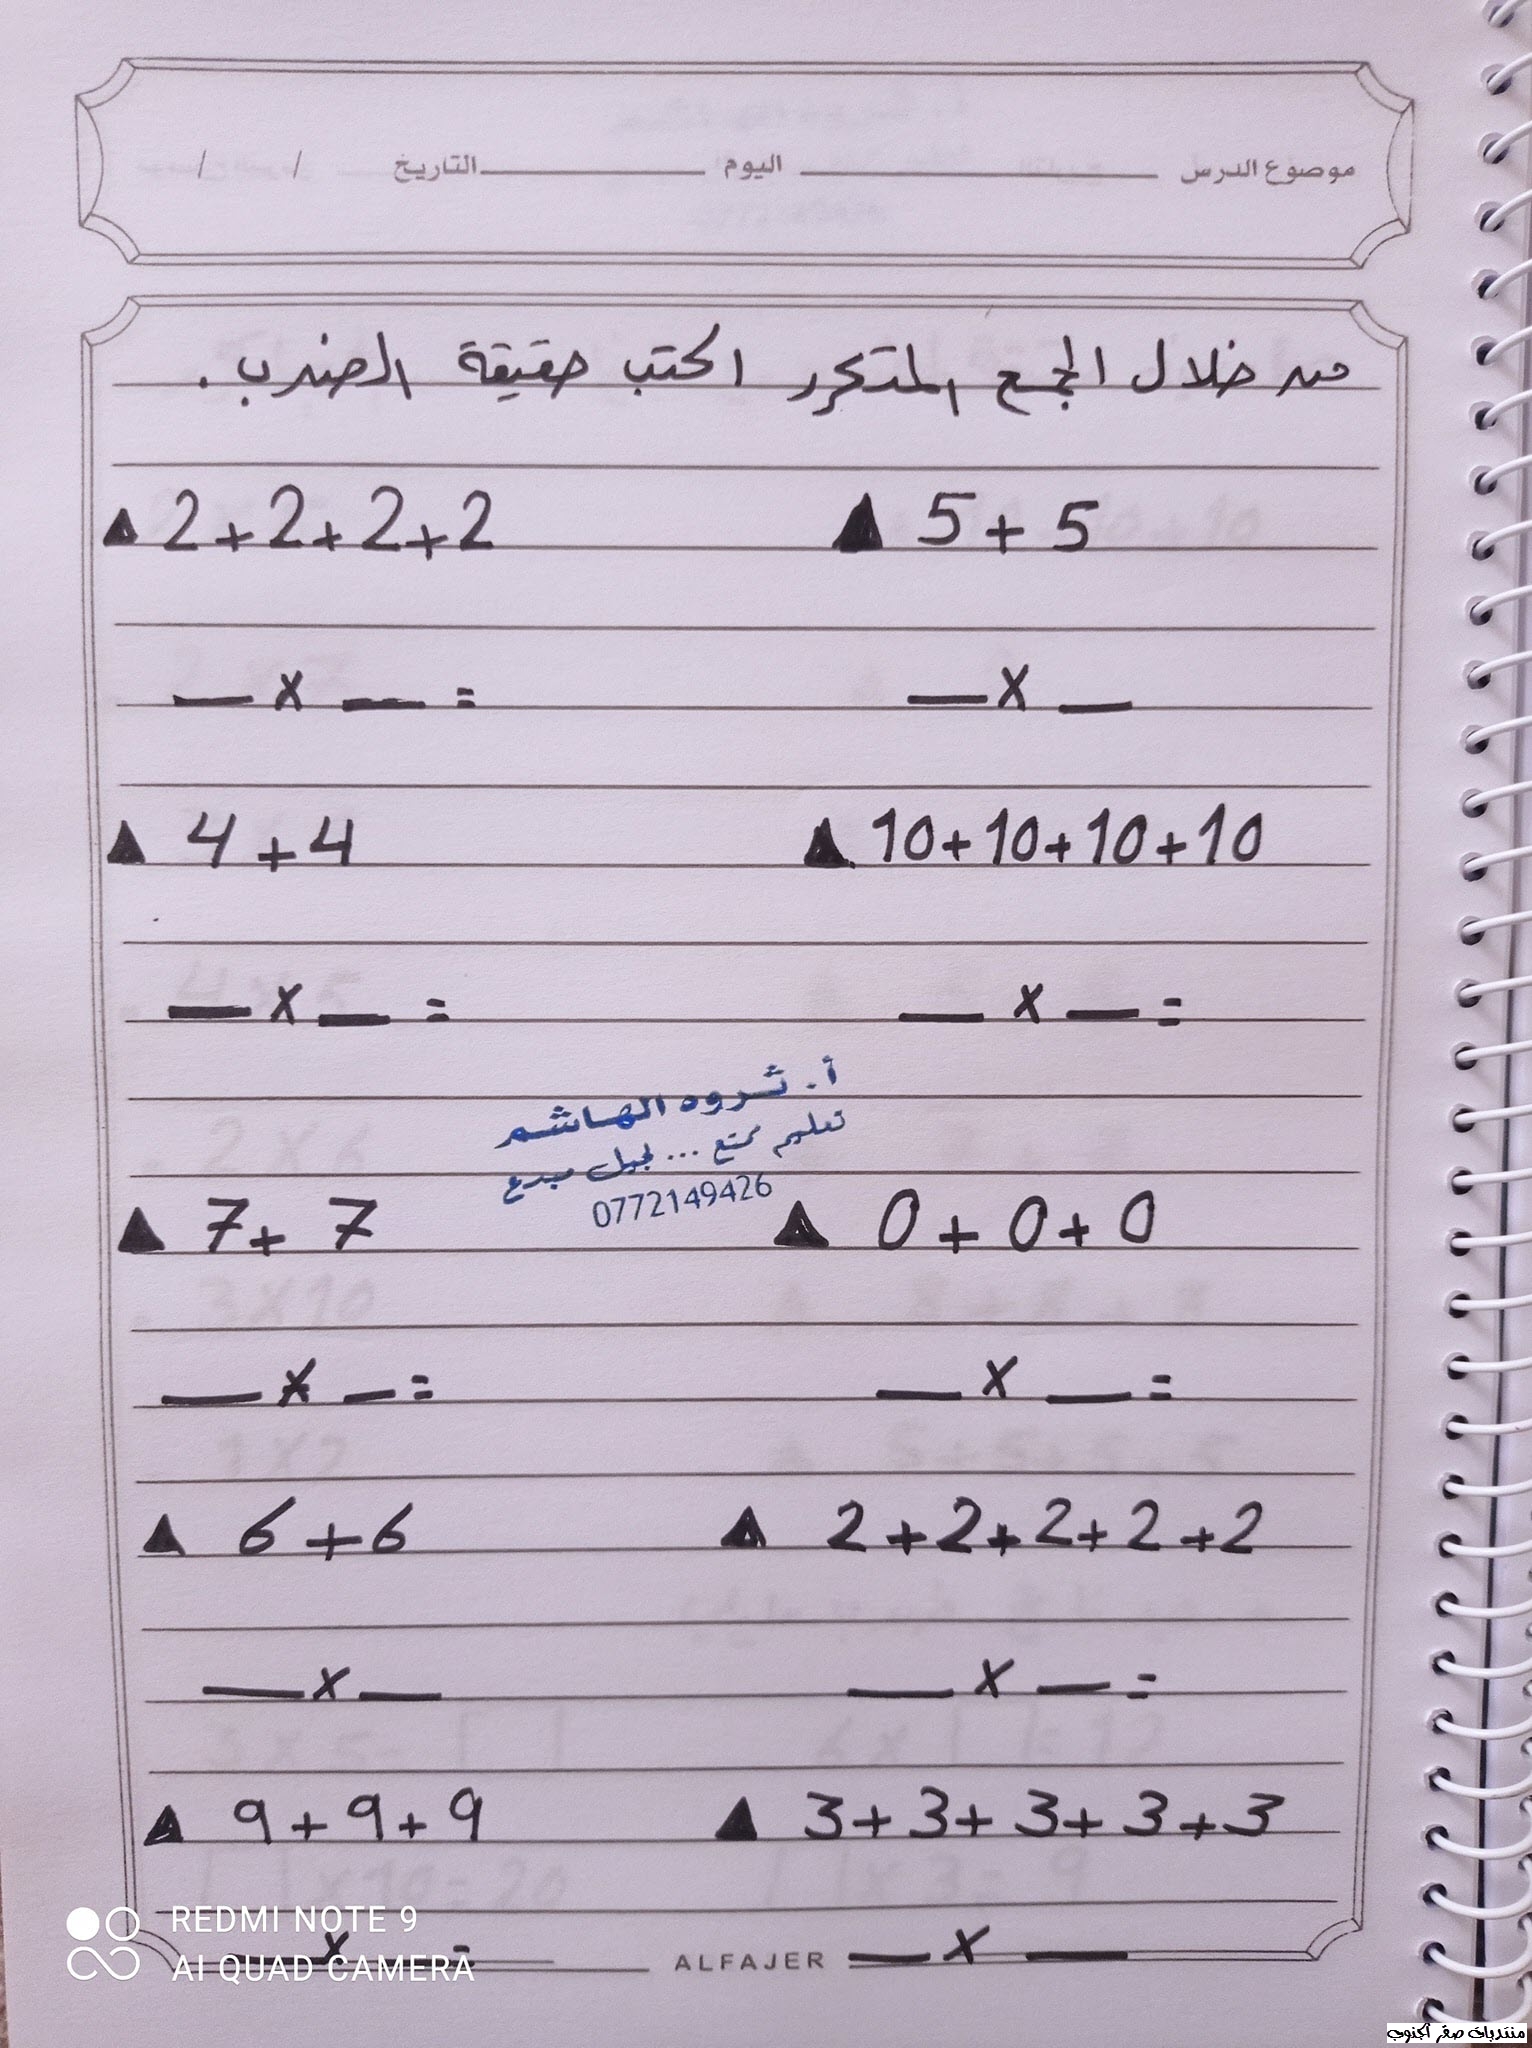 موضوع الدرس ــــــ اليوم ــــــ التاريخ / /
من خلال الجمع المتكرر اكتب حقيقة الضرب .
▲ 2+2+2+2 ▲ 5+5
__ x __ = __ x __
▲ 4+4 ▲ 10+10+10+10
__ x __ = __ x __ =
أ. ثروه الهاشم
تعليم ممتع ... لجيل مبدع
0772149426
▲ 7+7 ▲ 0+0+0
__ x __ = __ x __ =
▲ 6+6 ▲ 2+2+2+2+2
__ x __ __ x __ =
▲ 9+9+9 ▲ 3+3+3+3+3
__ x __ = __ x __
ALFAJER
REDMI NOTE 9
AI QUAD CAMERA
منتديات صقر الجنوب